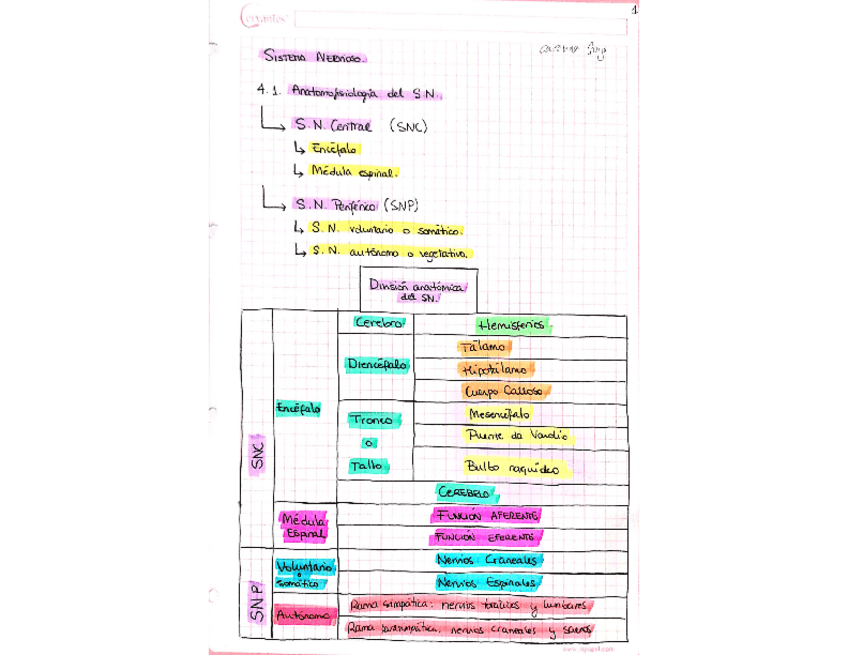 1
Cervantes
SISTEMA NERVIOSO.
4.1. Anatomofisiología del S.N.
S.N. Central (SNC)
Encéfalo
Médula espinal.
S.N. Periférico (SNP)
S.N. voluntario o somático.
S.N. autónomo o vegetativo.
División anatómica
del SN.
SNC
Encéfalo
Cerebro
Hemisferios
Diencéfalo
Tálamo
Hipotálamo
Cuerpo Calloso
Tronco
o
Tallo
Mesencéfalo
Puente de Varolio
Bulbo raquídeo
CEREBELO
Médula
Espinal
FUNCIÓN AFERENTE
FUNCIÓN EFERENTE
SNP
Voluntario
o
somático
Nervios Craneales
Nervios Espinales
Autónomo
Rama simpática: nervios torácicos y lumbares
Rama parasimpática: nervios craneales y sacros